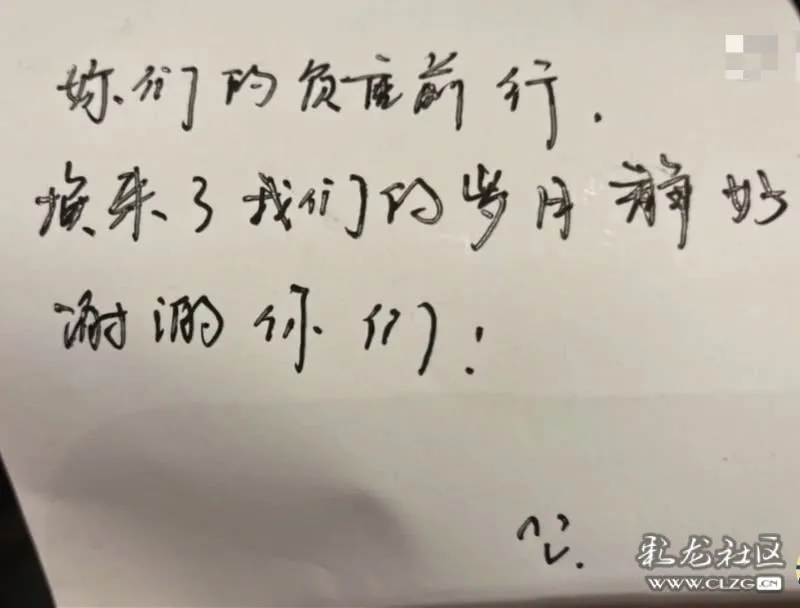 妳们的负重前行.
换来了我们的岁月静好
谢谢你们!
彩龙社区
WWW.CLZG.CN